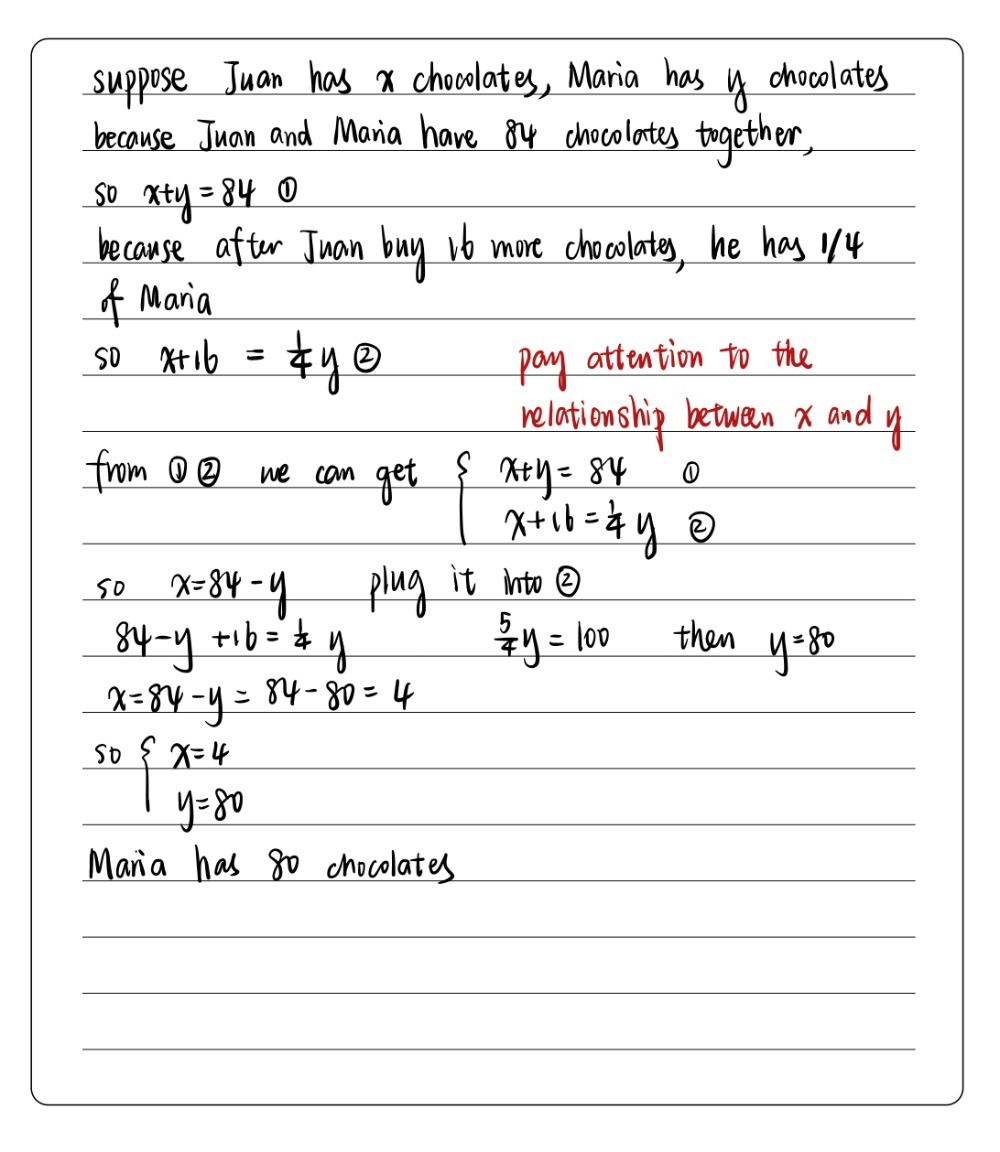 suppose Juan has x chocolates, Maria has y chocolates
because Juan and Maria have 84 chocolates together,
so x+y = 84 ①
because after Juan buy 16 more chocolates, he has 1/4
of Maria
so x+16 = 1/4 y ②
pay attention to the
relationship between x and y
from ① ② we can get { x+y = 84 ①
x+16 = 1/4 y ②
so x=84-y plug it into ②
84-y +16 = 1/4 y 5/4 y = 100 then y=80
x=84-y = 84-80 = 4
so { x=4
y=80
Maria has 80 chocolates